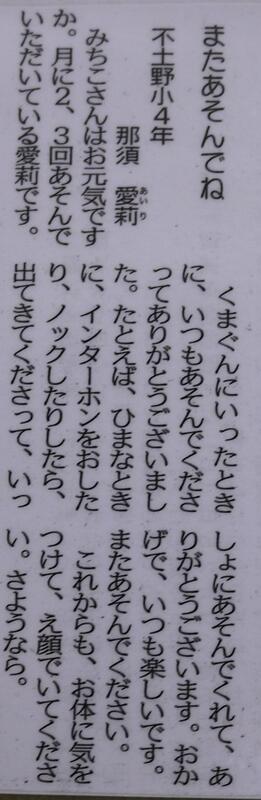 またあそんでね
不土野小4年
那須 愛莉
あいり
みちこさんはお元気です
か。月に2、3回あそんで
いただいている愛莉です。
くまぐんにいったとき
に、いつもあそんでくださ
ってありがとうございまし
た。たとえば、ひまなとき
に、インターホンをおした
り、ノックしたりしたら、
出てきてくださって、いっ
しょにあそんでくれて、あ
りがとうございます。おか
げで、いつも楽しいです。
またあそんでください。
これからも、お体に気を
つけて、え顔でいてくださ
い。さようなら。